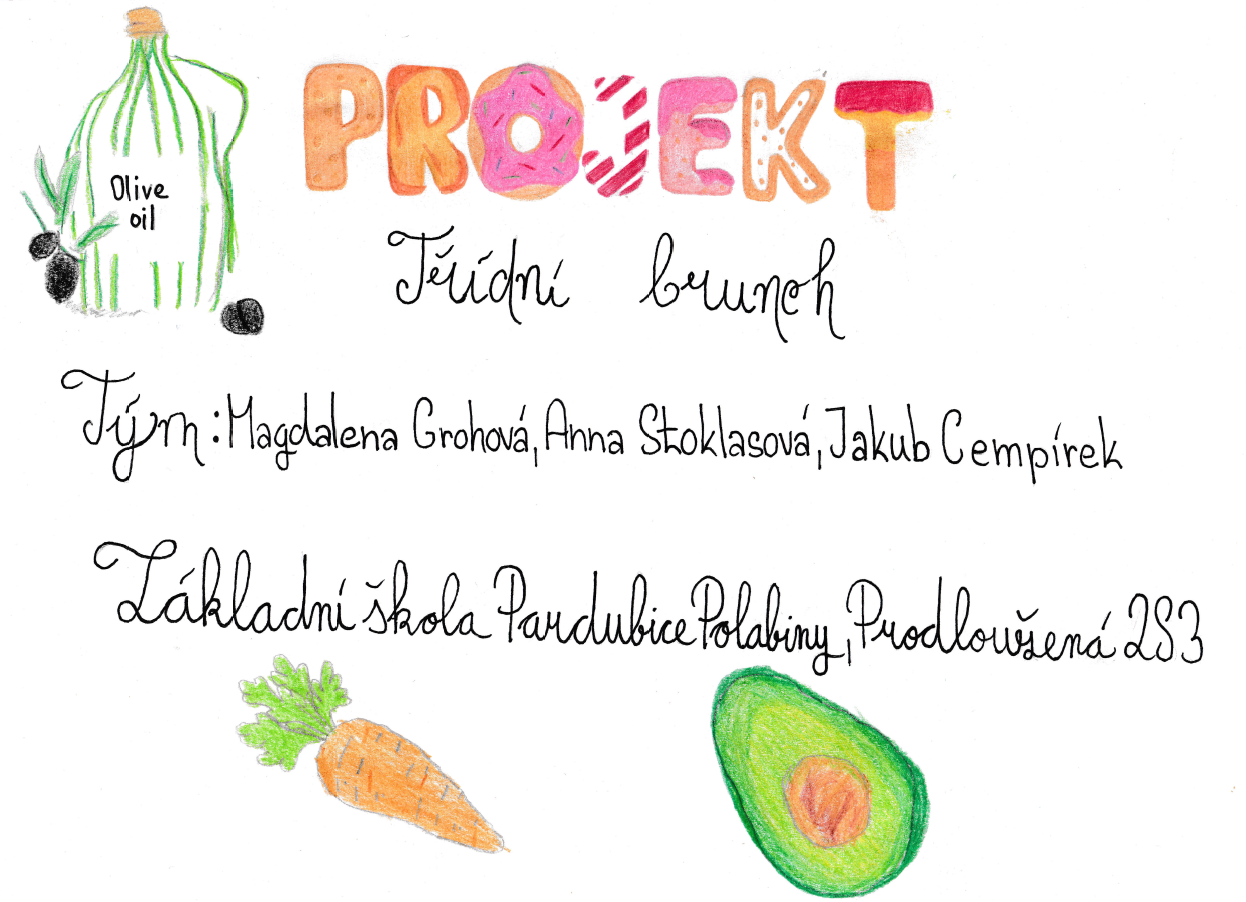 PROJEKT
Třídní brunch
Olive
oil
Tým: Magdalena Grohová, Anna Stoklasová, Jakub Cempírek
Základní škola Pardubice Polabiny, Prodloužená 283